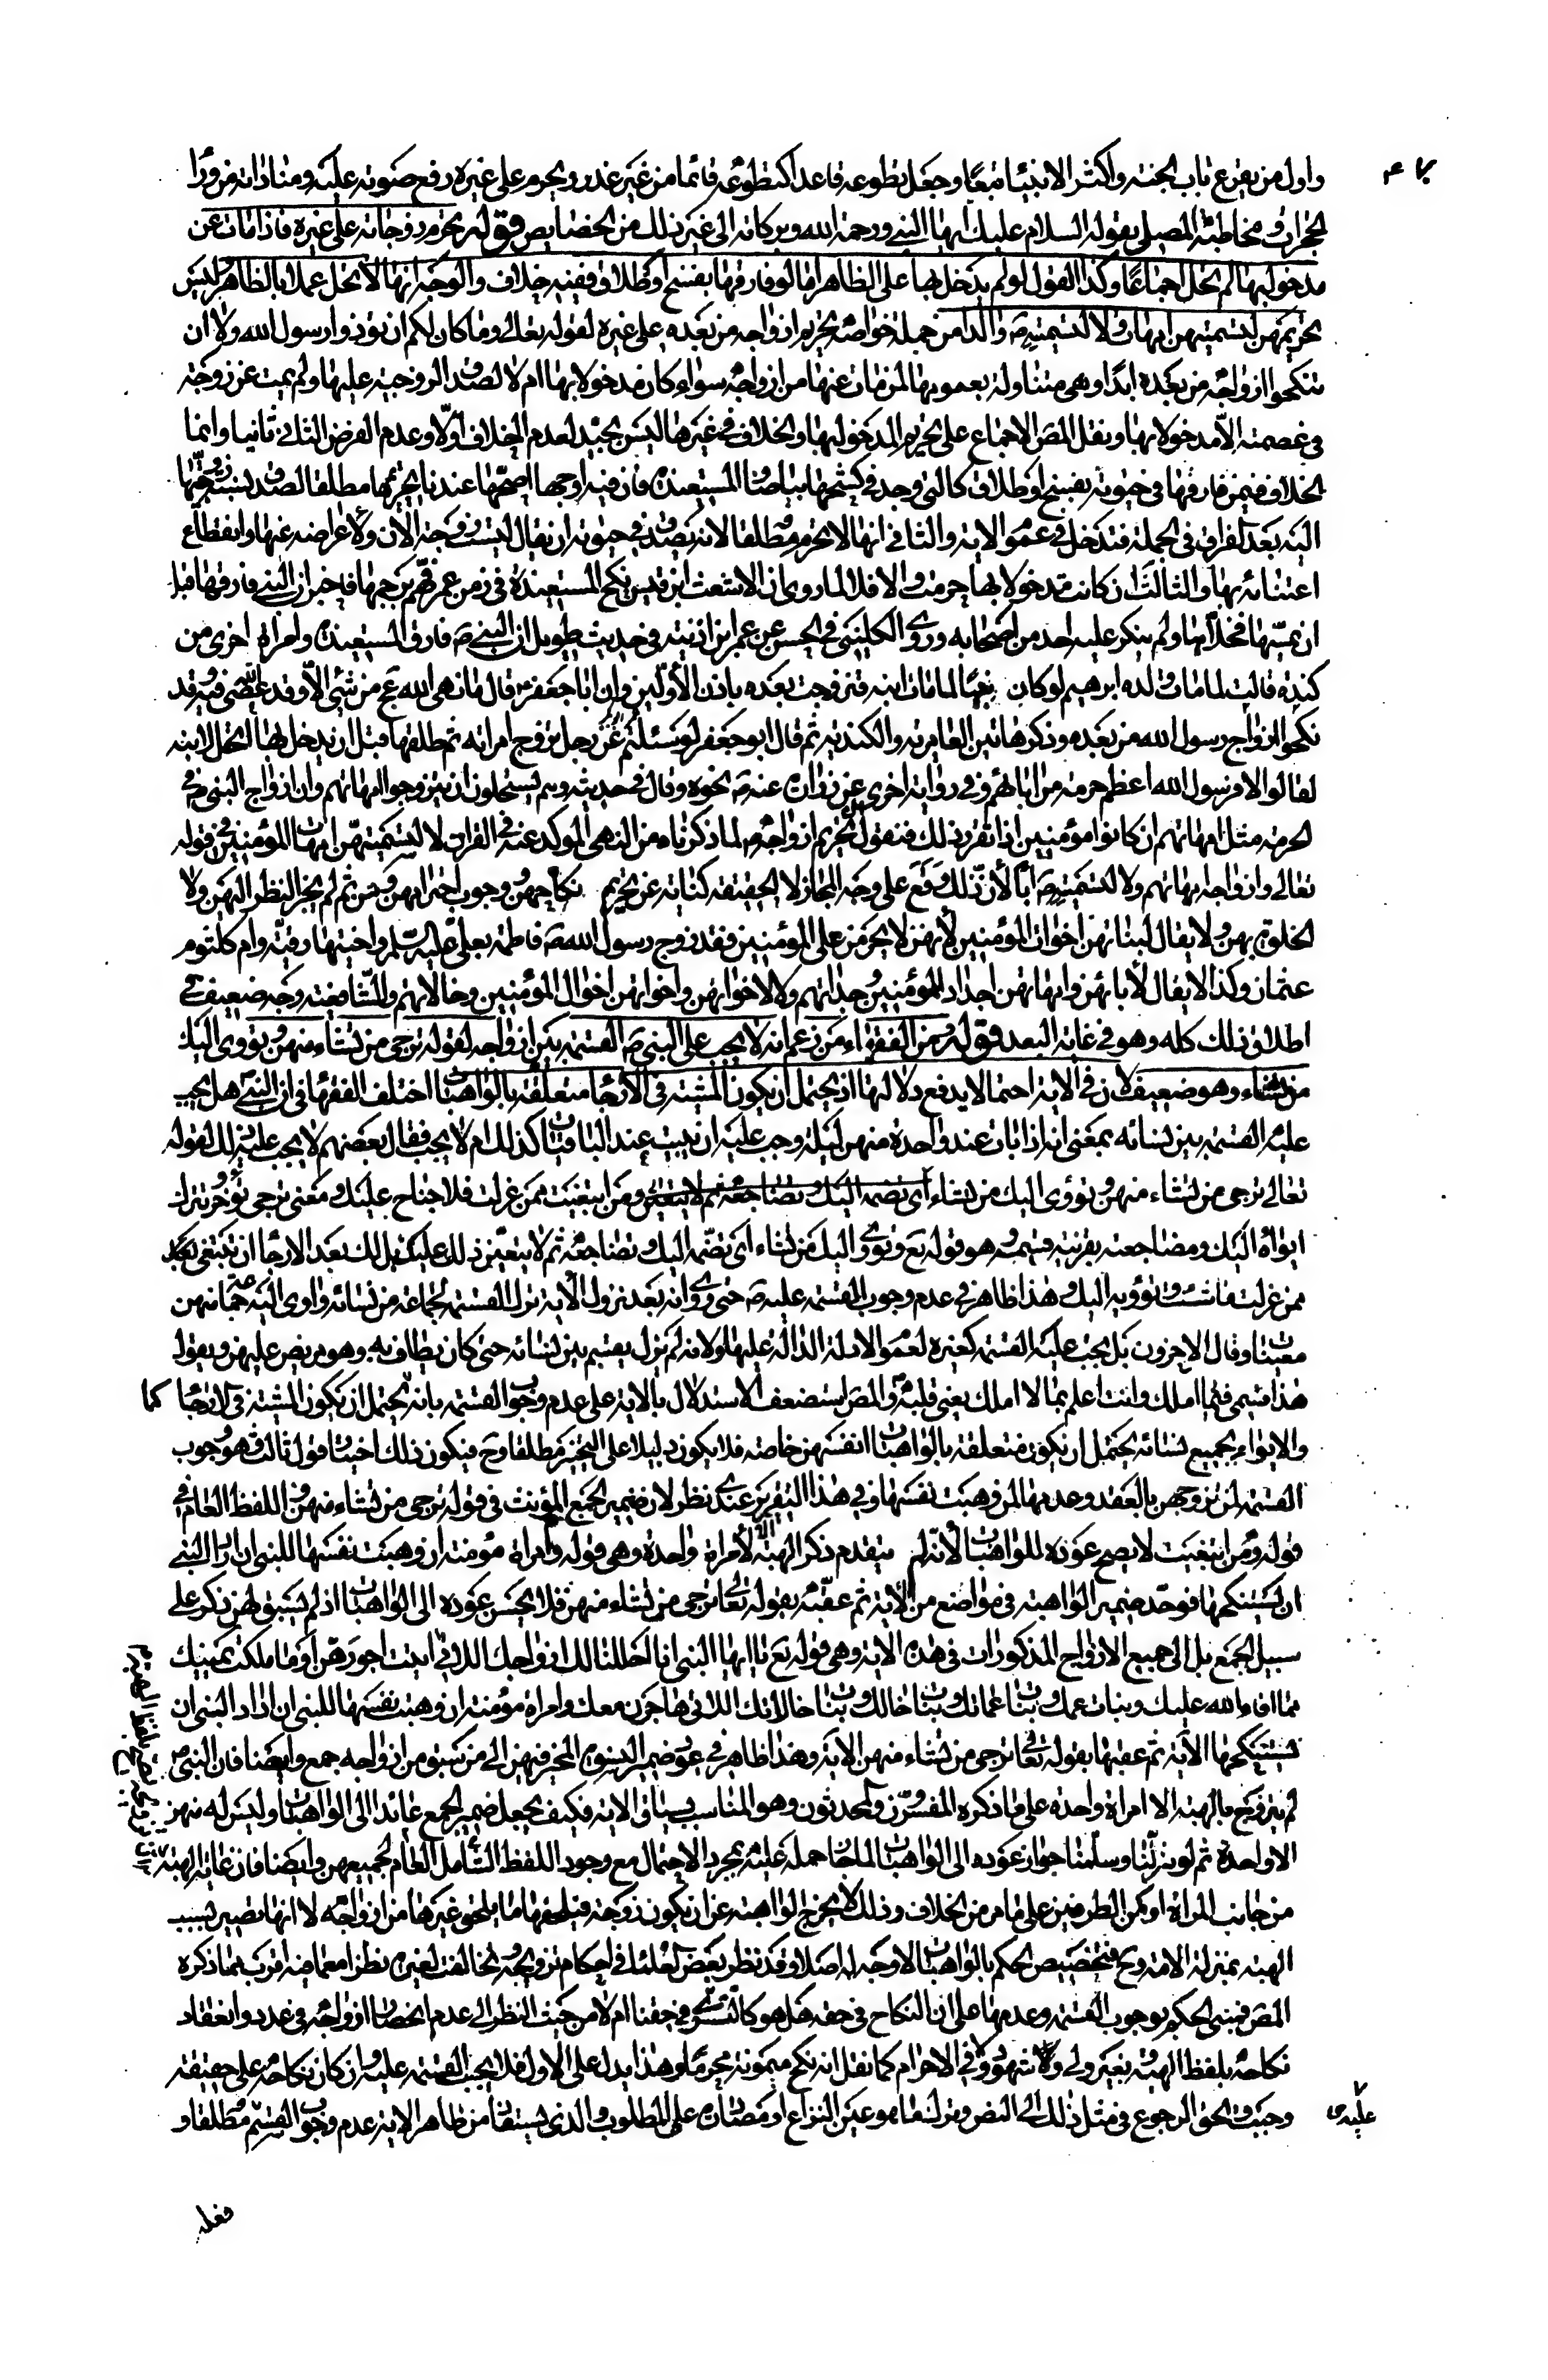 واول من يقرع باب الجنة واكثر الانبيآء تبعا وجعل تطوعه قاعدا كتطوعه قائما من غير عذر ويحرم على غيره رفع صوته عليه ومناداته من ورآء
الحجرات ومخاطبة المصلى بقوله السلام عليك ايها النبى ورحمة الله وبركاته الى غير ذلك من الخصايص قوله تحرم زوجاته على غيره فاذا مات عن
مدخول بها لم تحل اجماعا وكذا القول لو لم يدخل بها على الظاهر اما لو فارقها بفسخ او طلاق ففيه خلاف والوجه انها لا تحل عملا بالظاهر ليس
تحريمهن لتسميتهن امهات ولا لتسميته ص والدا من جملة خواصه تحريم ازواجه من بعده على غيره لقوله تعالى وما كان لكم ان تؤذوا رسول الله ولا ان
تنكحوا ازواجه من بعده ابدا وهى متناولة بعمومها لمن مات عنها من ازواجه سواء كان مدخولا بها ام لا لصدق الزوجية عليها ولم يمت عن زوجة
فى عصمته الا مدخولا بها ونقل المص الاجماع على تحريم المدخول بها والخلاف فى غيرها ليس بجيد لعدم الخلاف اولا وعدم الفرض الثانى ثانيا وانما
الخلاف فيمن فارقها فى حيوته بفسخ او طلاق كالتى وجد فى كشحها بياضا والمستعيذة فان فيه اوجها اصحها عندنا تحريمها مطلقا لصدق نسبة زوجيتها
اليه بعد الفراق فى الجملة فتدخل فى عموم الاية والثانى انها لا تحرم مطلقا لانه يصدق فى حيوته ان يقال ليست زوجته الان ولاعراضه عنها وانقطاع
اعتنائه بها والثالث ان كانت مدخولا بها حرمت والا فلا لما روى ان الاشعث ابن قيس نكح المستعيذة فى زمن عمر فهم برجمها فاخبر ان النبى فارقها قبل
ان يمسها فخلاهما ولم ينكر عليه احد من اصحابه وروى الكلينى فى الحسن عن عمر ابن اذينة فى حديث طويل ان النبى ص فارق المستعيذة وامراة اخرى من
كندة قالت لما مات ولده ابرهيم لو كان نبيا لما مات ابنه فتزوجت بعده باذن الاولين وان ابا جعفر ع قال ما نهى الله عج من شئ الا وقد عصى فيه قد
نكحوا ازواج رسول الله من بعده وذكر هاتين العامرية والكندية ثم قال ابو جعفر لو سئلتم عن رجل تزوج امراته ثم طلقها قبل ان يدخل بها اتحل لابنه
لقالوا لا فرسول الله اعظم حرمة من ابائهم وفى رواية اخرى عن زرارة عنه ع نحوه وقال فى حديثه وهم يستحلون ان يتزوجوا امهاتهم وان ازواج النبى ص فى
الحرمة مثل امهاتهم ان كانوا مؤمنين اذا تقرر ذلك فنقول تحريم ازواجه لما ذكرناه من النهى المؤكد عنه فى القران لا لتسميتهن امهات المؤمنين فى قوله
تعالى وازواجه امهاتهم ولا لتسميته ص ابا لان ذلك وقع على وجه المجاز لا الحقيقة كناية عن تحريم نكاحهن ووجوب احترامهن ومن ثم لم يجز النظر اليهن ولا
الخلوة بهن ولا يقال لبناتهن اخوات المؤمنين لانهن لا يحرمن على المؤمنين فقد زوج رسول الله ص فاطمة بعلى عليه السلم واختيها رقية وام كلثوم
عثمان وكذا لا يقال لابائهن وامهاتهن اجداد المؤمنين وجداتهم ولا لاخوانهن واخواتهن اخوال المؤمنين وخالاتهم وللشافعية وجه ضعيف فى
اطلاق ذلك كله وهو فى غاية البعد قوله ومن الفقهاء من زعم انه لا يجب على النبى ص القسمة بين ازواجه لقوله ترجى من تشاء منهن وتؤوى اليك
من تشاء وهو ضعيف لان فى الاية احتمالا يدفع دلالتها اذ يحتمل ان يكون المشية فى الارجآء متعلقة بالواهبات اختلف الفقهآء فى ان النبى هل يجب
عليه القسمة بين نسائه بمعنى انه اذا بات عند واحدة منهن ليلة وجب عليه ان يبيت عند الباقيات كذلك ام لا يجب فقال بعضهم لا يجب عليه ذلك لقوله
تعالى ترجى من تشاء منهن وتؤوى اليك من تشاء اى تضمه اليك وتضاجعه ثم لا يتعين ومن ابتغيت ممن عزلت فلا جناح عليك ومعنى ترجى تؤخر وتترك
ايوائه اليك ومضاجعته بقرينة قسيمه وهو قوله تع وتؤوى اليك من تشاء اى تضمه اليك وتضاجعه ثم لا يتعين ذلك عليك بل لك بعد الارجآء ان تبتغى
ممن عزلت ما شئت وتؤويه اليك وهذا ظاهر فى عدم وجوب القسمة عليه ص حتى روى انه بعد نزول الاية ترك القسمة لجماعة من نسائه واوى اليه جماعة منهن
معينات وقال الاخرون بل يجب عليه القسمة كغيره لعموم الادلة الدالة عليها ولانه لم يزل يقسم بين نسائه حتى كان يطاف به وهو مريض عليهن ويقول
هذا قسمى فيما املك وانت اعلم بما لا املك يعنى قلبه والمص استضعف الاستدلال بالاية على عدم وجوب القسمة بانه يحتمل ان يكون المشية فى الارجآء كما
والايواء بجميع نسائه يحتمل ان يكون متعلقة بالواهبات انفسهن خاصة فلا يكون دليلا على التخيير مطلقا وح فيكون ذلك اختيارا لقول ثالث وهو وجوب
القسمة لمن تزوجهن بالعقد وعدمها لمن وهبت نفسها وفى هذا التقرير عندى نظر لان ضمير الجمع المؤنث فى قوله ترجى من تشاء منهن واللفظ العام فى
قوله ومن ابتغيت لا يصح عوده للواهبات لانه لم يتقدم ذكر الهبة الا لامراة واحدة وهى قوله وامراة مؤمنة ان وهبت نفسها للنبى ان اراد النبى
ان يستنكحها فوحد ضمير الواهبة فى مواضع من الاية ثم عقبه بقوله تعالى ترجى من تشاء منهن فلا يحسن عوده الى الواهبات اذ لم يسبق لهن ذكر على
سبيل الجمع بل الى جميع الازواج المذكورات فى هذه الاية وهى قوله تع يا ايها النبى انا احللنا لك ازواجك اللاتى اتيت اجورهن وما ملكت يمينك
مما افاء الله عليك وبنات عمك وبنات عماتك وبنات خالك وبنات خالاتك اللاتى هاجرن معك وامراة مؤمنة ان وهبت نفسها للنبى ان اراد النبى ان
يستنكحها الاية ثم عقبها بقوله تعالى ترجى من تشاء منهن الاية وهذا ظاهر فى عود ضمير النسوة المخير فيهن الى من سبق من ازواجه جمع وايضا فان النبى ص
لم يتزوج بالهبة الا امراة واحدة على ما ذكره المفسرون والمحدثون وهو المناسب لسياق الاية فكيف يجعل ضمير الجمع عائدا الى الواهبات وليس له منهن
الا واحدة ثم لو تنزلنا وسلمنا جواز عوده الى الواهبات لما جاز حمله عليه بمجرد الاحتمال مع وجود اللفظ الشامل العام لجميعهن وايضا فان غاية الهبة
من جانب المراة او من الطرفين على ما مر من الخلاف وذلك لا يخرج الواهبة عن ان يكون زوجة فيلحقها ما يلحق غيرها من ازواجه لا انها تصير بسبب
الهبة بمنزلة الامة وح فتخصيص الحكم بالواهبات لا وجه له اصلا وقد نظر بعض العلماء فى احكام تزويجه المخالفة لغيره نظرا معما فيه اقرب مما ذكره
المص فبنى الحكم بوجوب القسمة وعدمها على ان النكاح فى حقه هل هو كالتسرى فى حقنا ام لا من حيث النظر الى عدم انحصار ازواجه فى عدد وانعقاد
نكاحه بلفظ الهبة وبغير ولى ولا شهود وفى الاحرام كما نقل انه نكح ميمونة محرما وهذا يدل على الاول فلا يجب القسمة عليه وان كان نكاحه على حقيقته
وجبت والحق الرجوع فى مثل ذلك الى النص وترك ما هو عين النزاع او مصادرة على المطلوب والذى يستفاد من ظاهر الاية عدم وجوب القسم مطلقا و